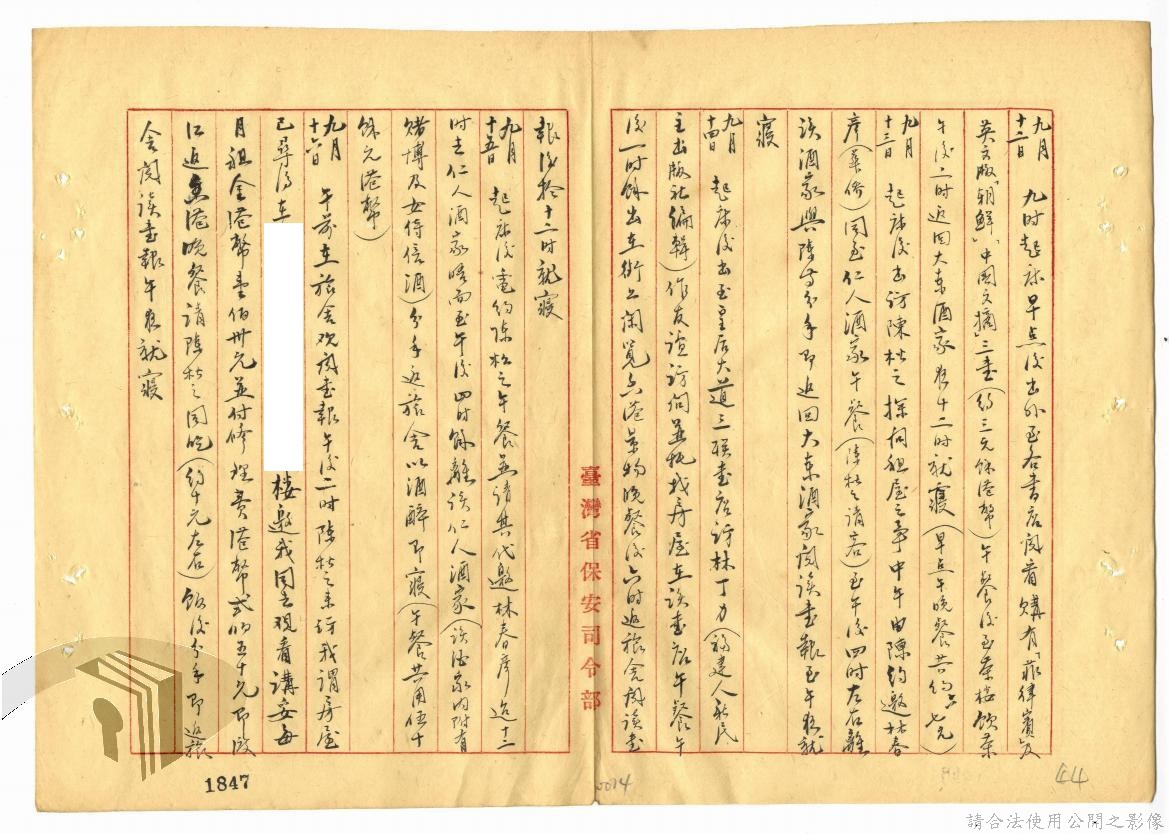 九月十二日 九时起床早点後出外至各書店阅看購有「菲律賓及
英文版「朝鮮」「中國文摘」三書(約三元餘港幣)午餐後至茶楼飲茶
午後二时返回大東酒家夜十二时就寢(早点午晚餐共約六七元)
九月十三日 起床後出訪陳松之探询租屋之事中午由陳約邀林春
彦(華僑)同至仁人酒家午餐(陳松之請客)至午後四时左右離
该酒家與陳等分手即返回大東酒家阅读書報至午夜就
寢
九月十四日 起床後出至皇后大道三联書店訪林丁力(福建人新民
主出版社編輯)作友谊訪问並托找房屋在该書店午餐午
後一时餘出在街上闲览香港景物晚餐後六时返旅舍阅读書
報後於十二时就寢
九月十五日 起床後電約陳松之午餐並请其代邀林春彦迄十二
时去仁人酒家晤面至午後四时餘離该仁人酒家(该酒家内附有
賭博及女侍倍酒)分手返旅舍以酒醉即寢(午餐共用伍十
餘元港幣)
九月十六日 午前在旅舍观阅書報午後二时陳松之来訪我謂房屋
已尋得在
楼邀我同去观看講妥每
月租金港幣壹佰卅元並付修理费港幣式佰五十元即渡
江返香港晚餐請陳松之同吃(約十元左右)飯後分手即返旅
舍阅读書報午夜就寢
臺灣省保安司令部
1847
0014
44
請合法使用公開之影像